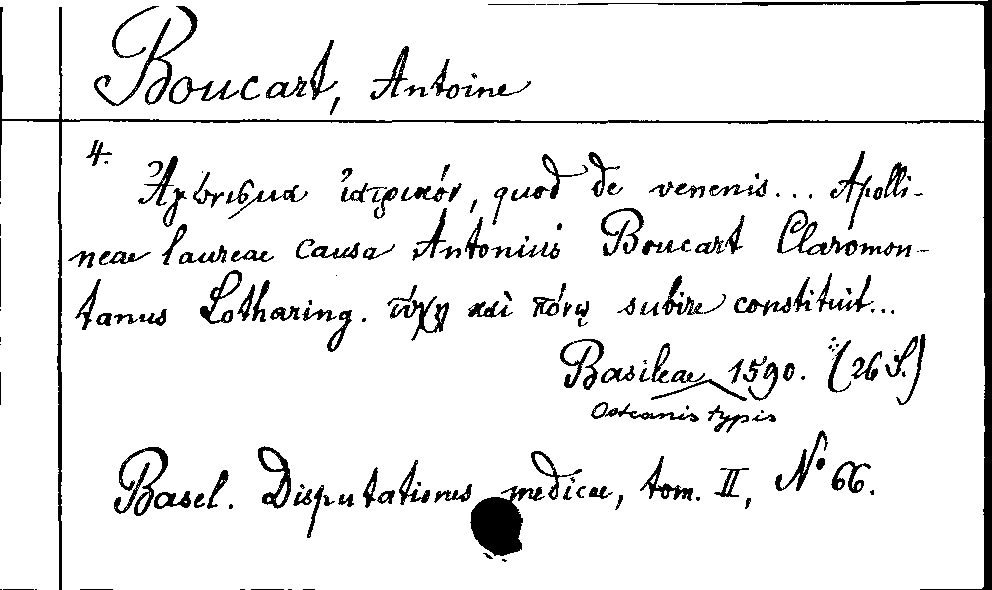 Boucart, Antoine
4.
Ἀγώνισμα ἰατρικόν, quod de venenis... Apolli-
neae laureae causa Antonius Boucart Claromon-
tanus Lotharing. τύχῃ καὶ πόνῳ subire constituit...
Basileae 1590. (26 S.)
Osteanis typis
Basel. Disputationes medicae, tom. II, N° 66.